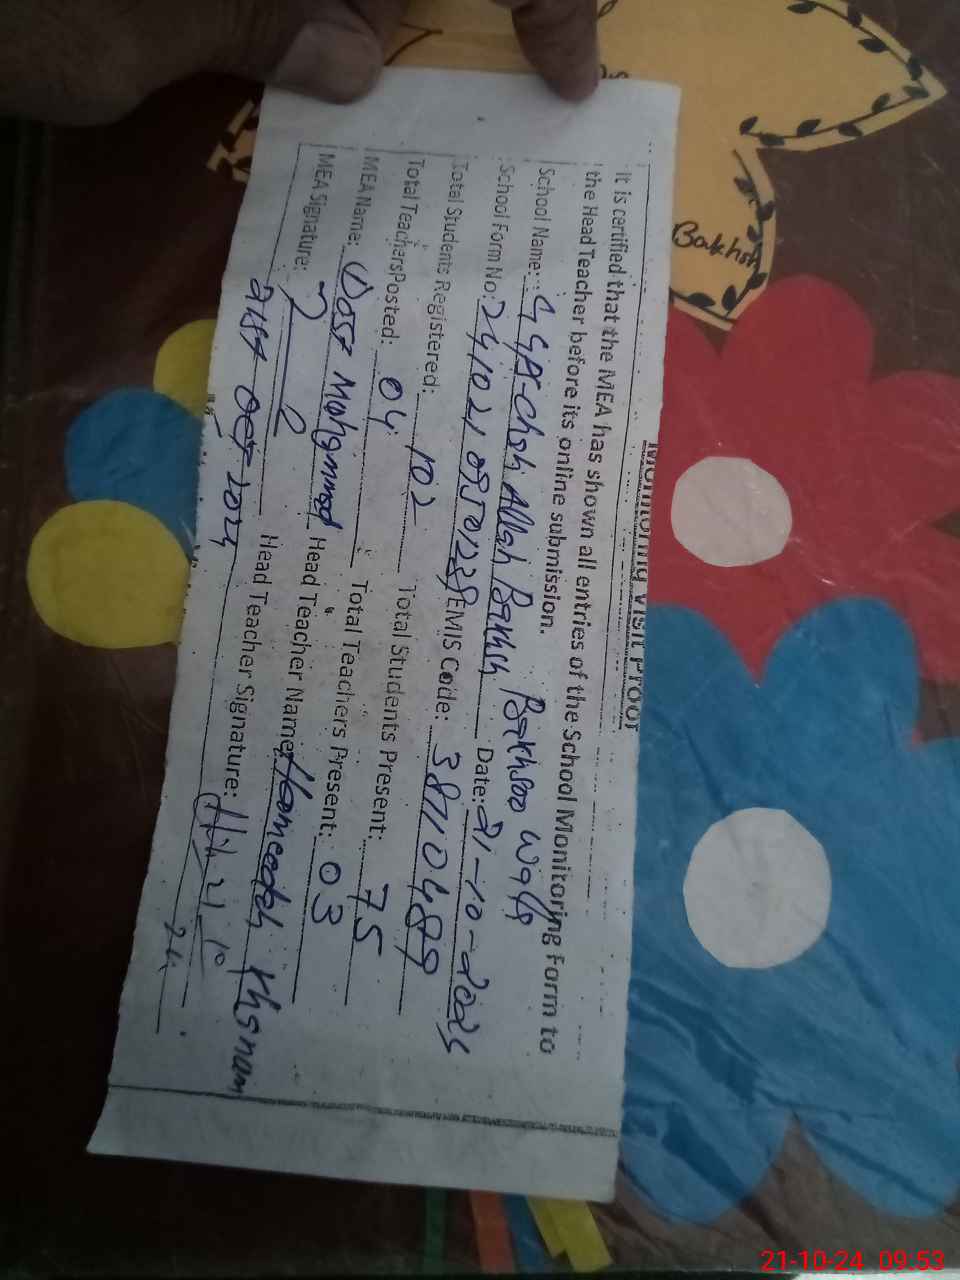 Monitoring Visit Proof
It is certified that the MEA has shown all entries of the School Monitoring Form to
the Head Teacher before its online submission.
School Name: GGPS-Chah Allah Bakhsh Bakhsoo Wala
School Form No: Date: 21-10-2024
Total Students Registered: 102 EMIS Code: 38110489
Total Teachers Posted: 04 Total Students Present: 75
MEA Name: Dost Mohammad Total Teachers Present: 03
MEA Signature: Head Teacher Name: Hameedah Khanam
21st Oct 2024 Head Teacher Signature: 21 10
24
Bakhsh
21-10-24 09:53